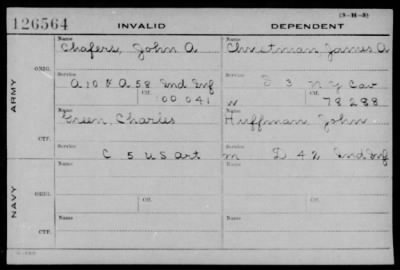 (3-H-8)
126564 INVALID DEPENDENT
Name Name
Chafers, John A Christman James A
ORIG. Service Service
A 10 & A 58 Ind Inf D 3 N Y Cav
Ctf. Ctf.
100 041 W 78288
ARMY
Name Name
Green, Charles Huffman John
CTF. Service
C 5 U S Art m D 42 Ind Inf
NAVY
Name Name
ORIG. Service Service
Ctf. Ctf.
Name Name
CTF. Service Service